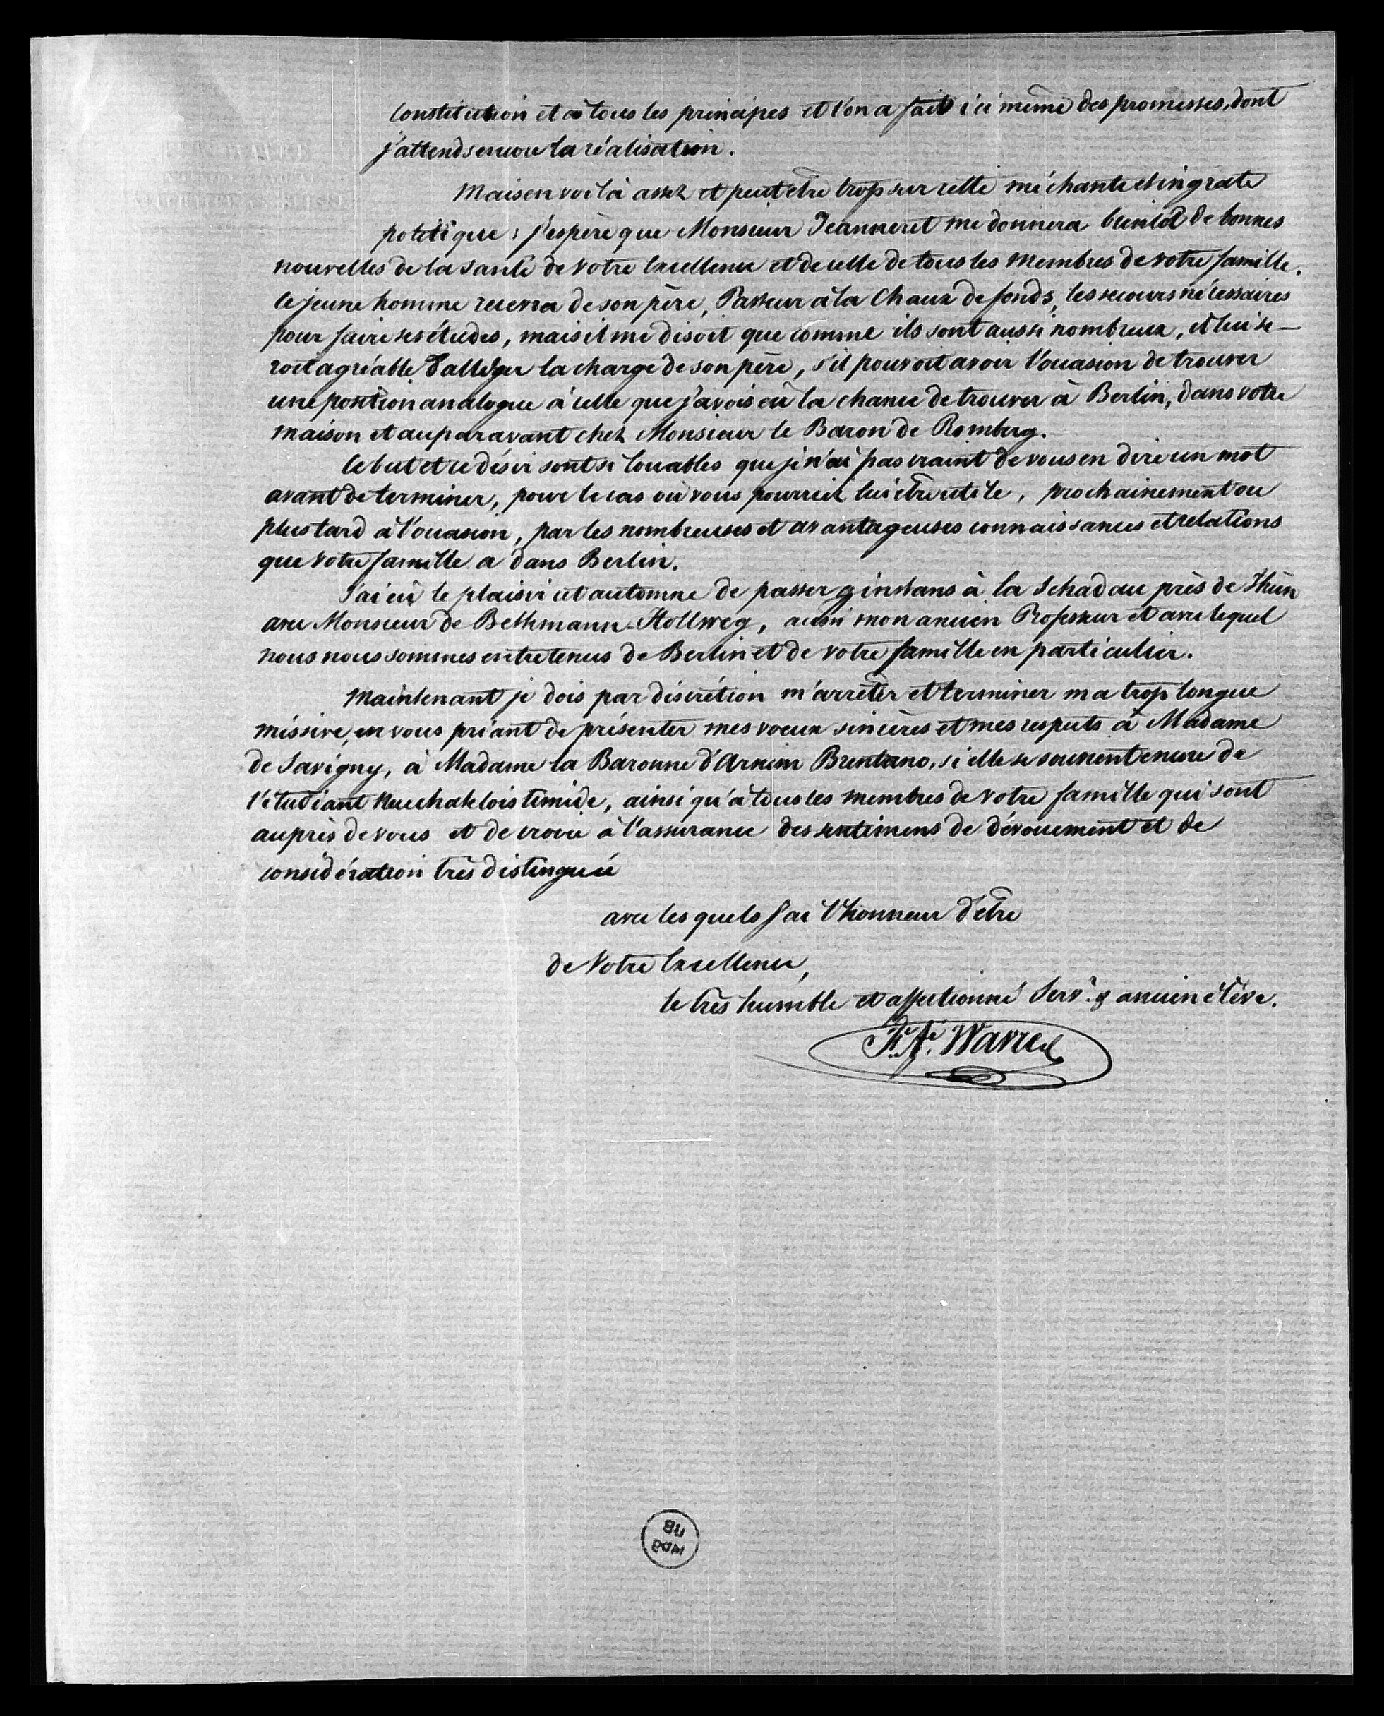 constitution et à tous les principes et l'on a fait ici même des promesses, dont
j'attends encore la réalisation.
Mais en voilà assez et peut être trop sur cette méchante et ingrate
politique ; j'espère que Monsieur Jeanneret me donnera bientôt de bonnes
nouvelles de la santé de votre Excellence et de celle de tous les membres de votre famille.
Ce jeune homme recevra de son père, Pasteur à la Chaux de fonds, les secours nécessaires
pour faire ses études, mais il me disoit que comme ils sont aussi nombreux, il lui se-
roit agréable d'alléger la charge de son père, s'il pouvoit avoir l'occasion de trouver
une position analogue à celle que j'avois eû la chance de trouver à Berlin, dans votre
maison et auparavant chez Monsieur le Baron de Romberg.
Ce but et ce désir sont si louables que je n'ai pas craint de vous en dire un mot
avant de terminer, pour le cas où vous pourriez lui être utile, prochainement ou
plus tard à l'occasion, par les nombreuses et avantageuses connaissances et relations
que votre famille a dans Berlin.
J'ai eû le plaisir cet automne de passer qq instans à la Schadau près de Thun
avec Monsieur de Bethmann-Hollweg, aussi mon ancien Professeur et avec lequel
nous nous sommes entretenus de Berlin et de votre famille en particulier.
Maintenant je dois par discrétion m'arrêter et terminer ma trop longue
missive, en vous priant de présenter mes voeux sincères et mes respects à Madame
de Savigny, à Madame la Baronne d'Arnim Brentano, si elle se souvient encore de
l'étudiant Neuchatelois timide, ainsi qu'à tous les membres de votre famille qui sont
auprès de vous et de croire à l'assurance des sentimens de dévouement et de
considération très distinguée
avec lesquels j'ai l'honneur d'être
de Votre Excellence,
le très humble et affectionné Servr. & ancien élève.
Wavre
BU
MDB